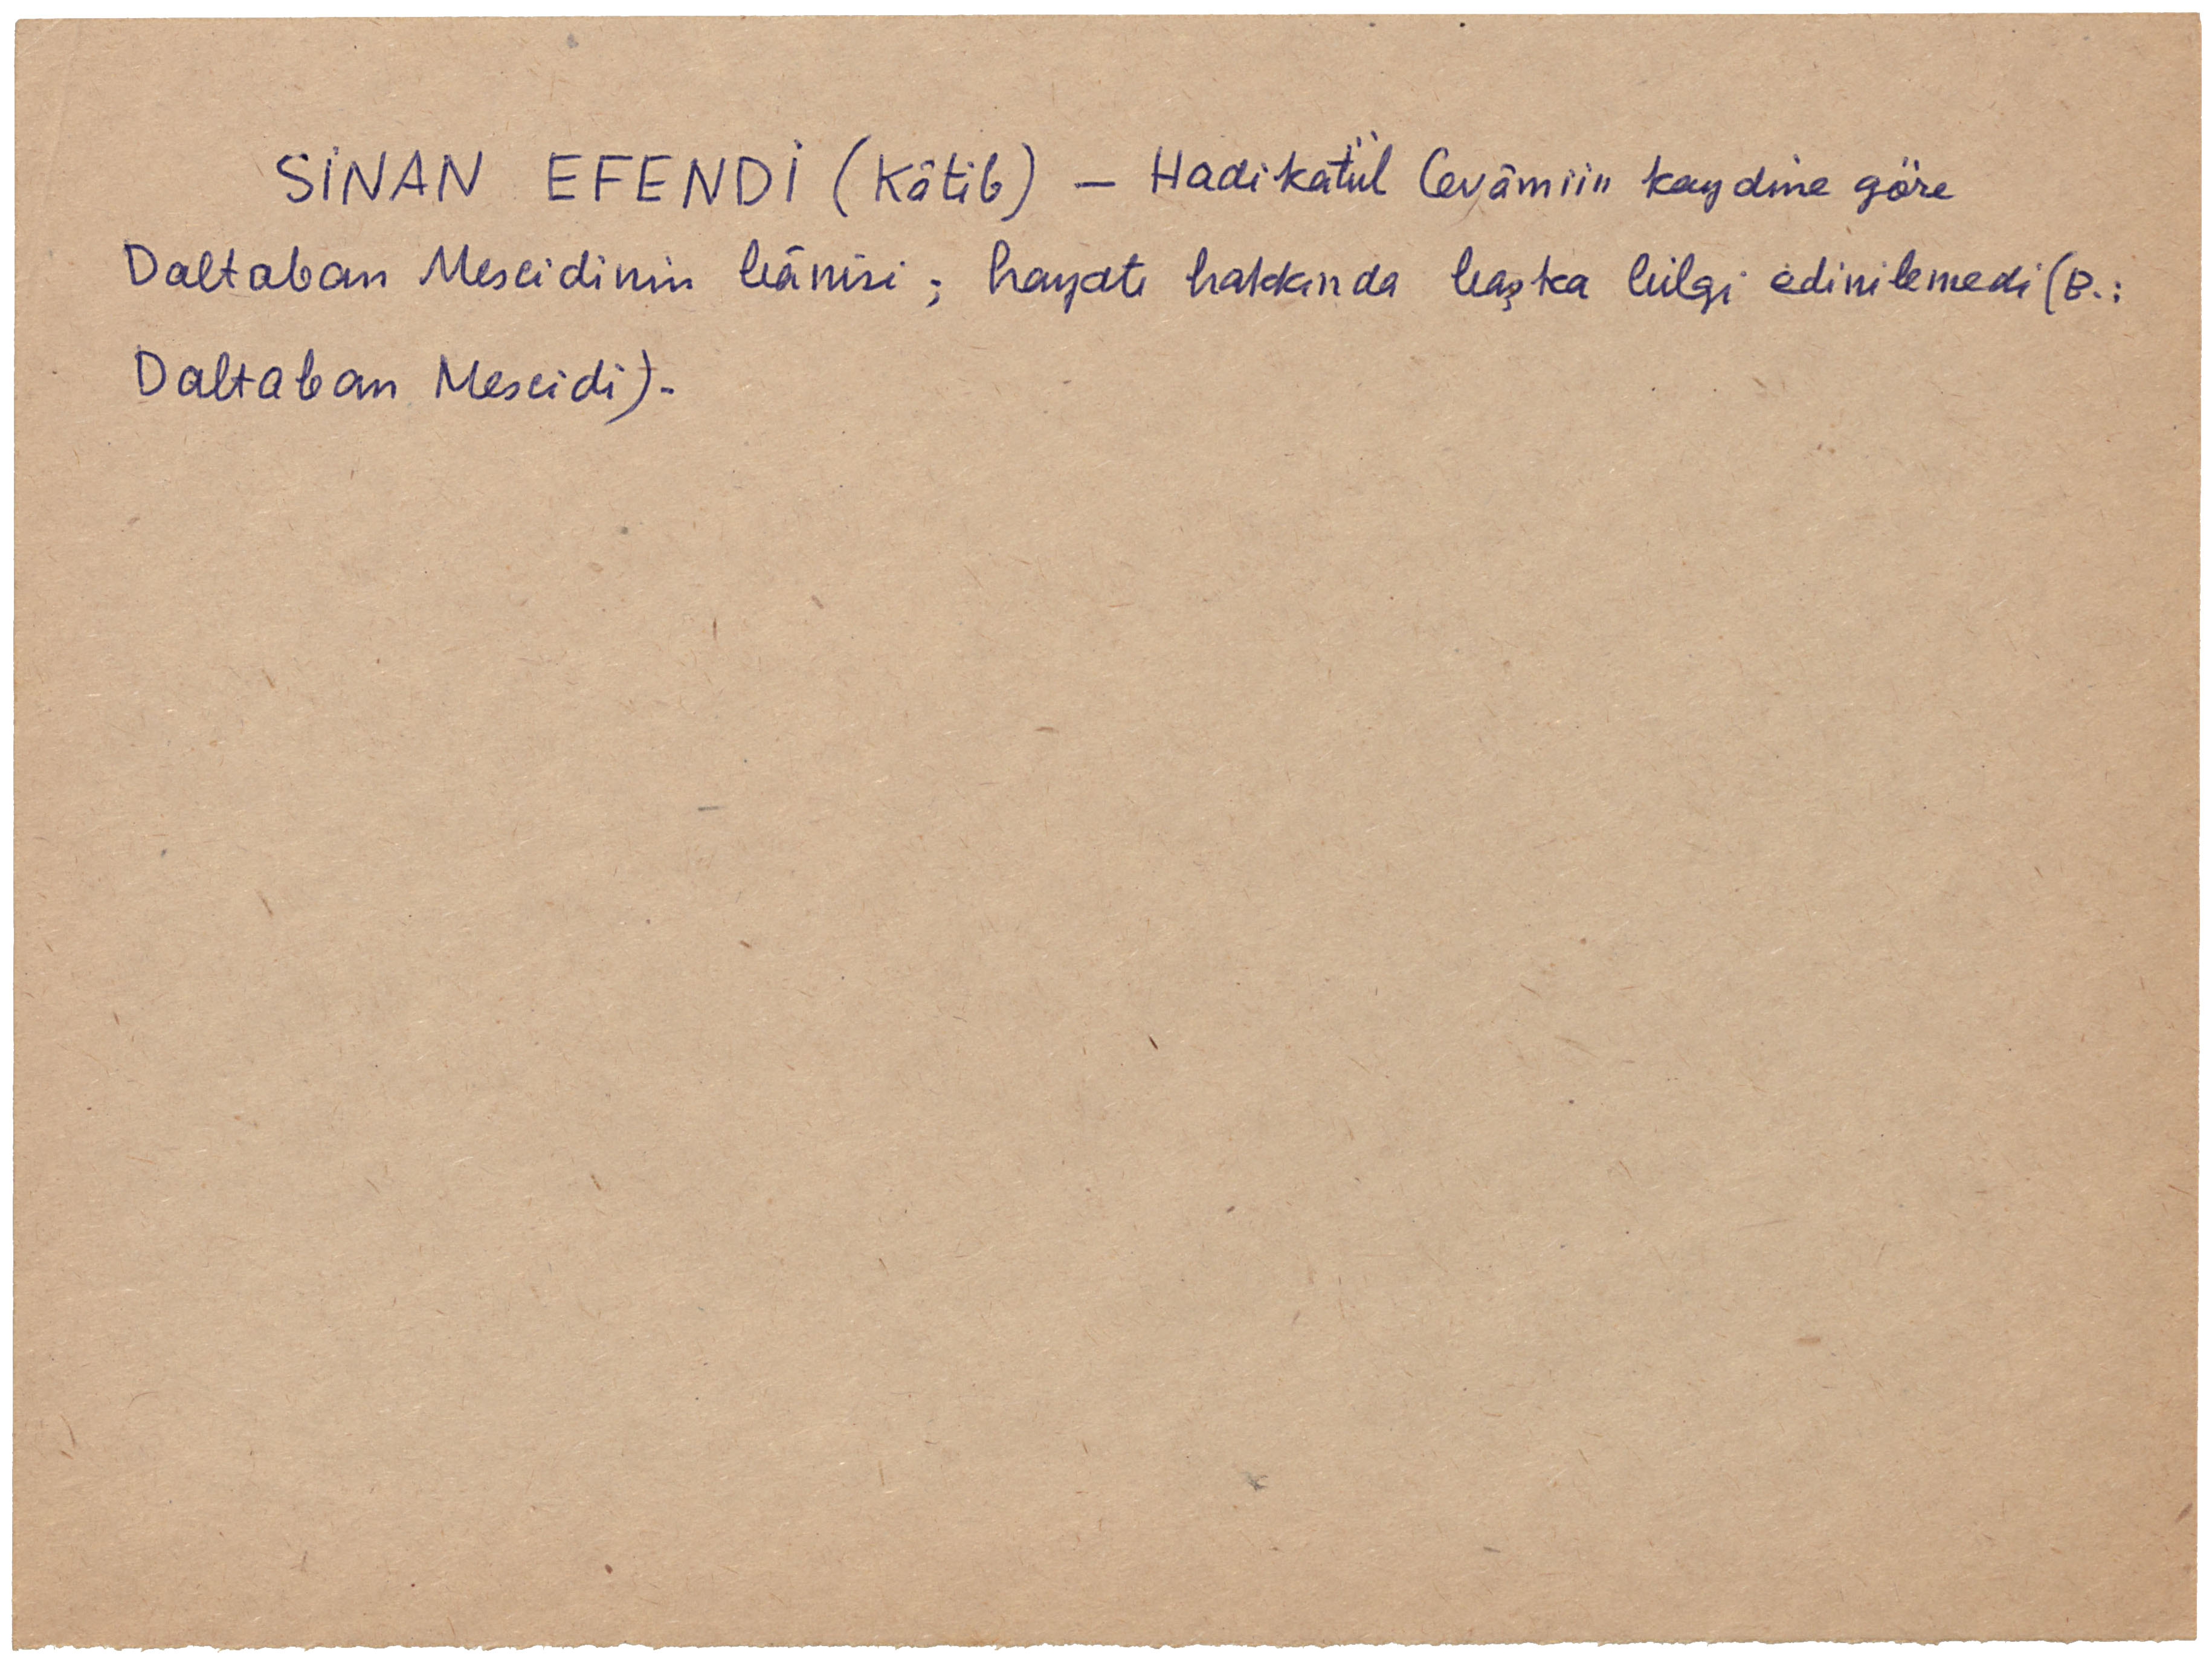 SİNAN EFENDİ (Kâtib) — Hadikatül Cevâmiin kaydine göre
Daltaban Mescidinin bânisi; hayatı hakkında başka bilgi edinilemedi (B.:
Daltaban Mescidi).